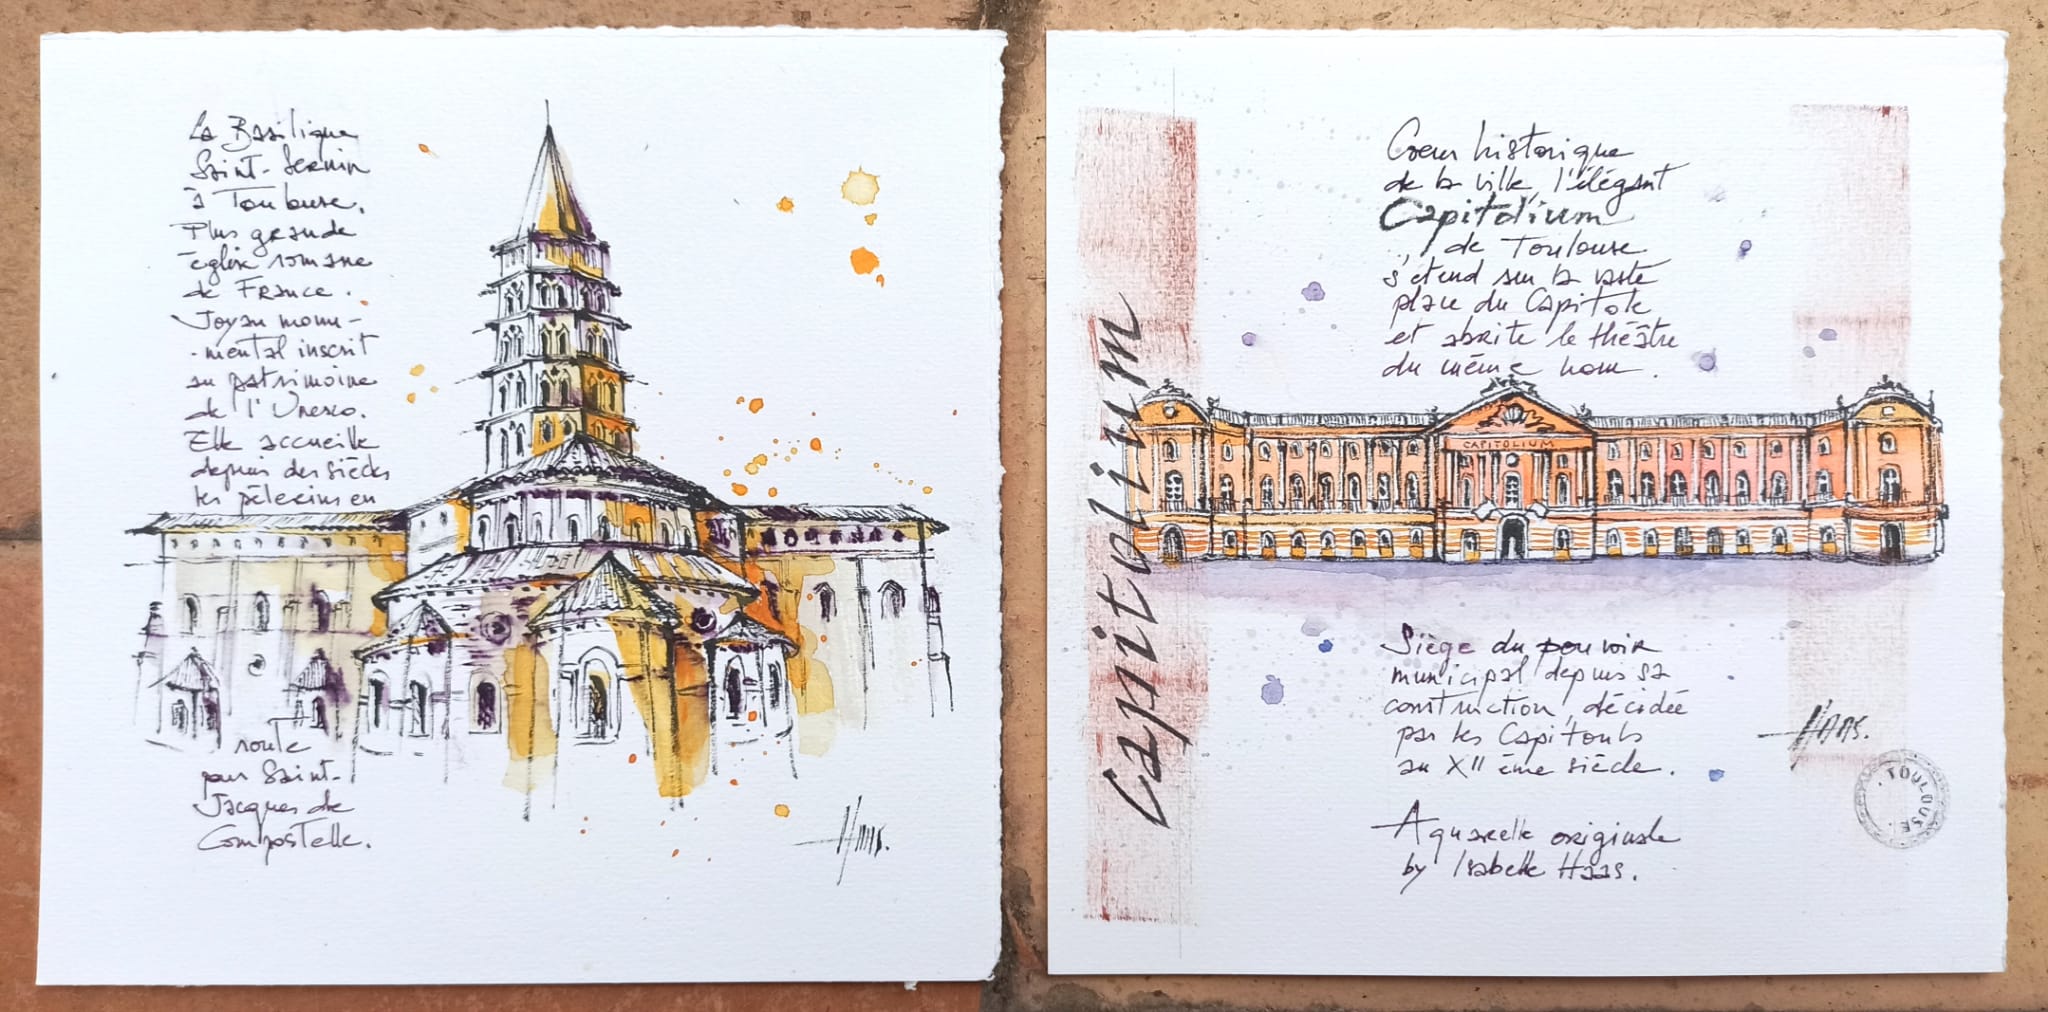 La Basilique
Saint-Sernin
à Toulouse.
Plus grande
église romane
de France.
Joyau monu-
-mental inscrit
au patrimoine
de l'Unesco.
Elle accueille
depuis des siècles
les pèlerins en
route
pour Saint-
Jacques de
Compostelle.
Haas.
Capitolium
Coeur historique
de la ville, l'élégant
Capitolium
de Toulouse
s'étend sur la vaste
place du Capitole
et abrite le théâtre
du même nom.
CAPITOLIUM
Siège du pouvoir
municipal depuis sa
construction, décidée
par les Capitouls
au XII ème siècle.
Haas.
TOULOUSE
Aquarelle originale
by Isabelle Haas.